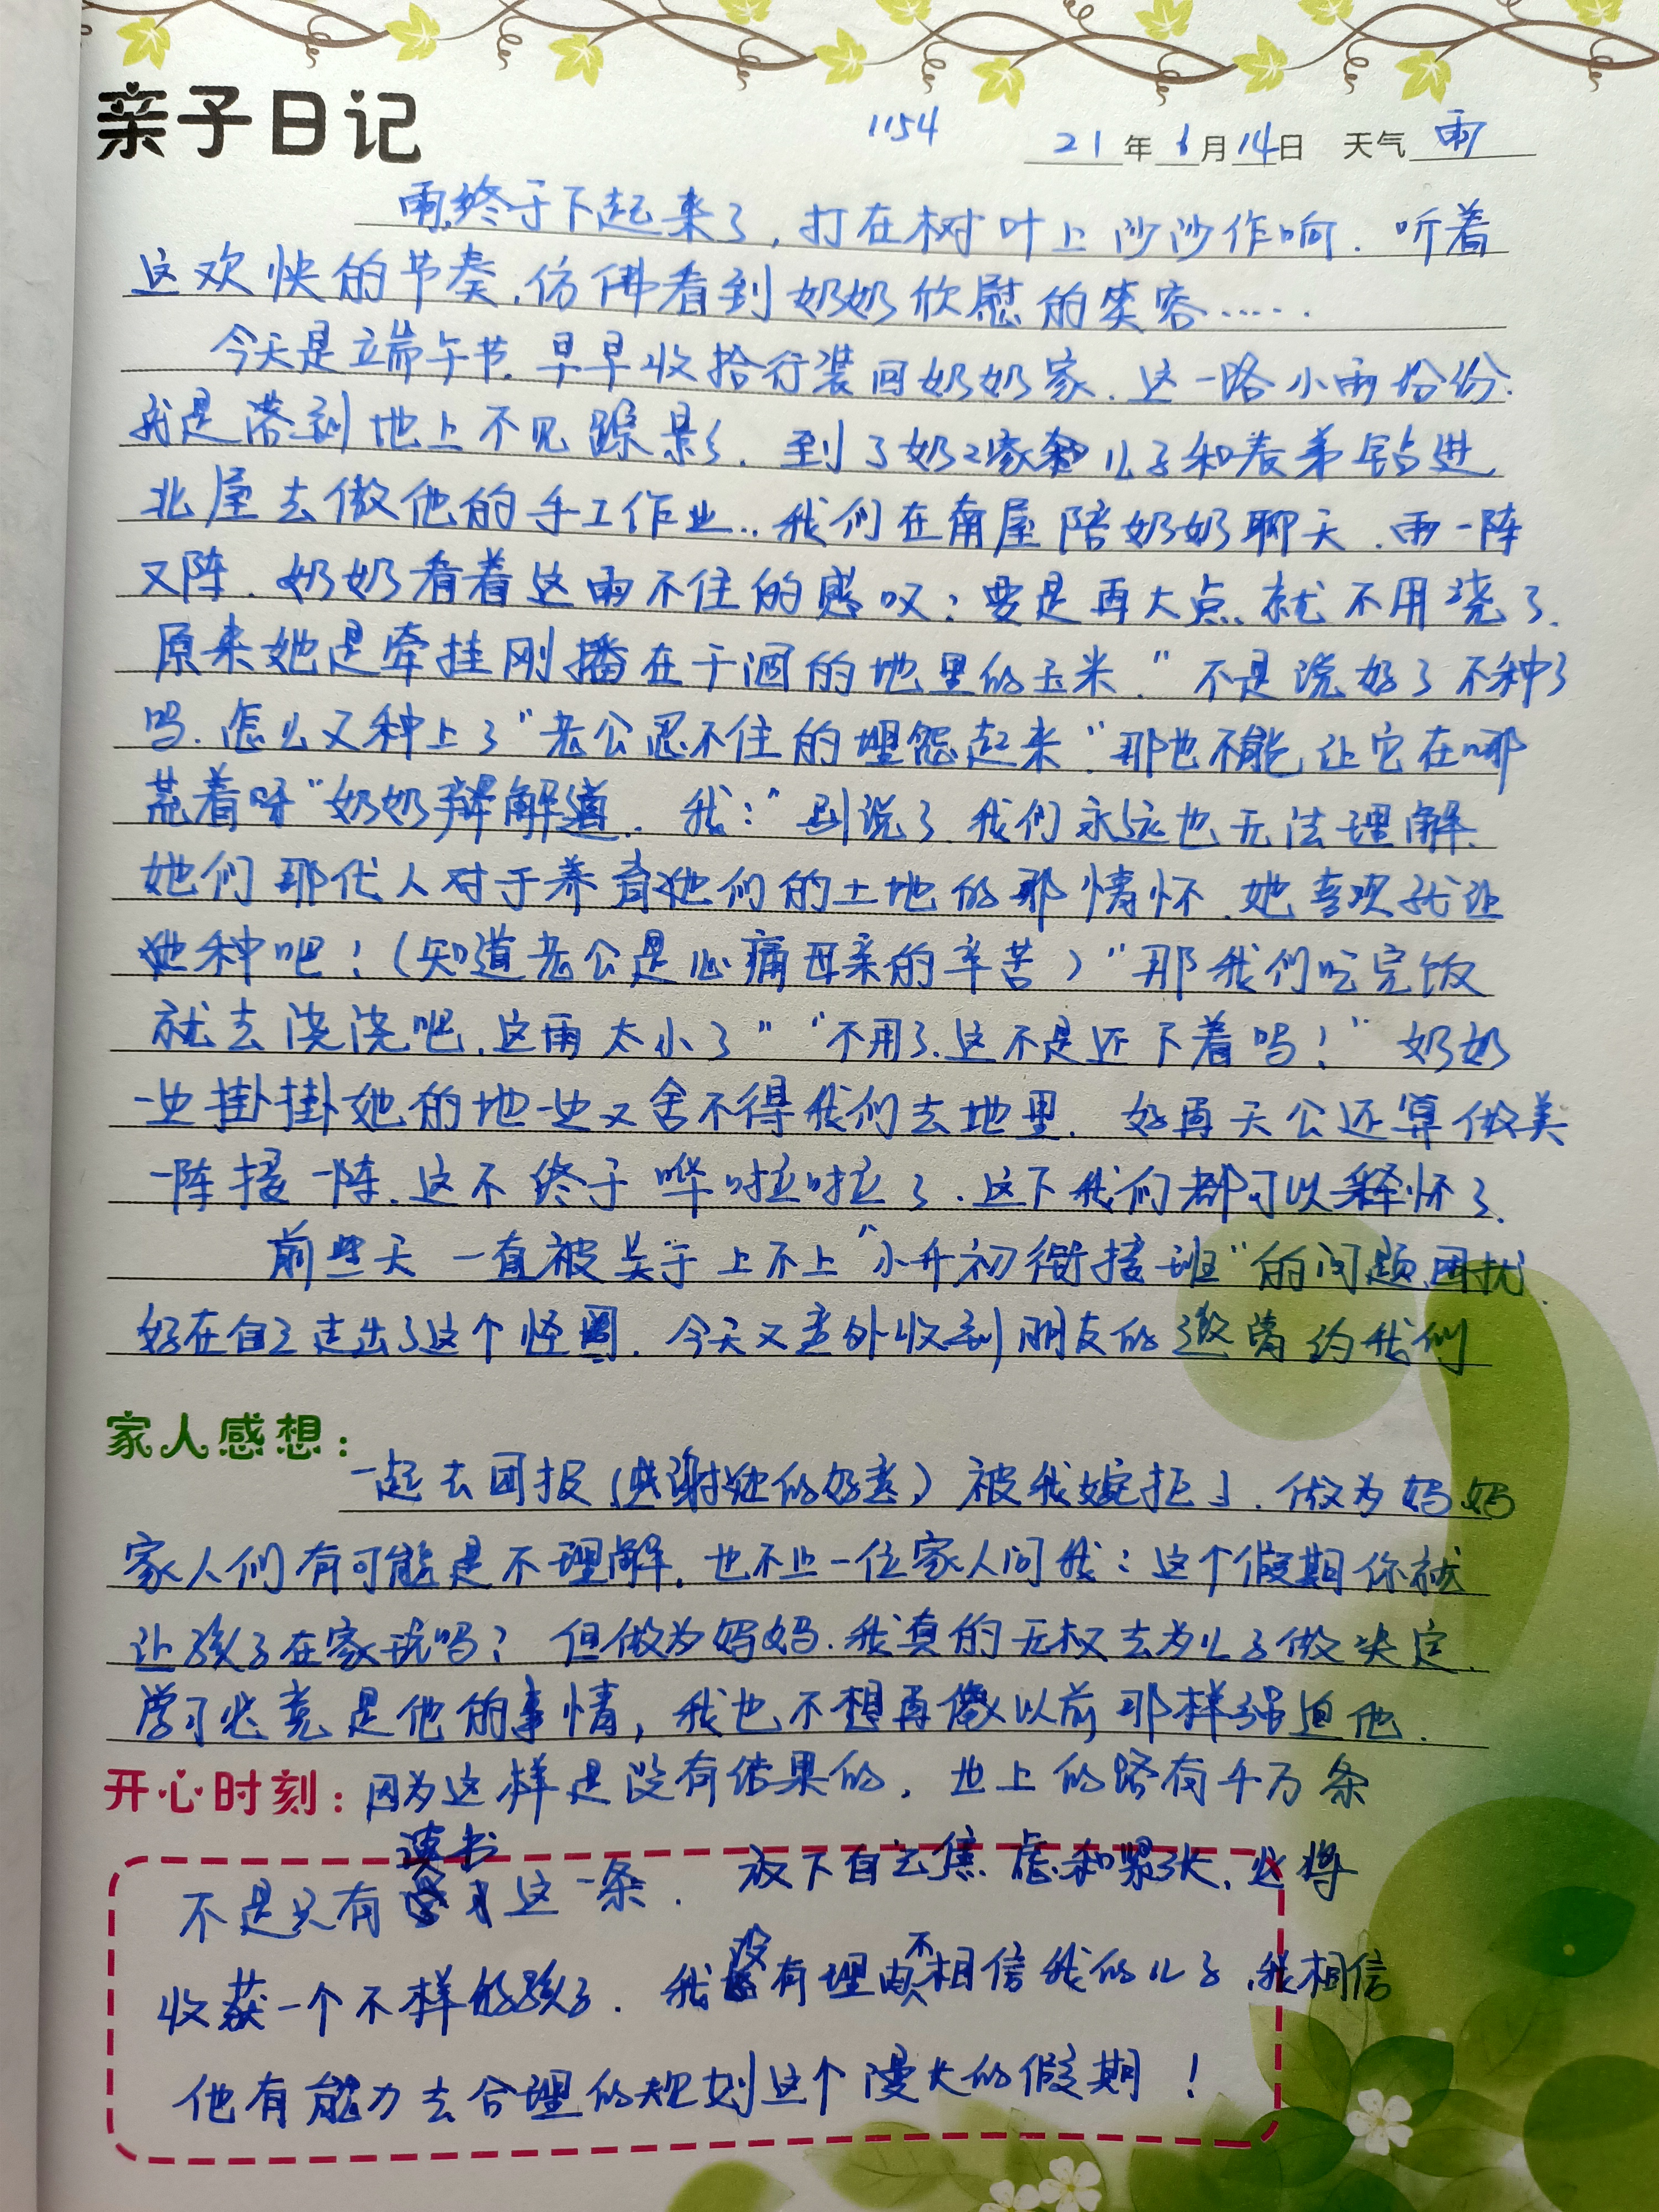 亲子日记
1154
21年6月14日 天气雨
雨终于下起来了,打在树叶上沙沙作响.听着
这欢快的节奏,仿佛看到奶奶欣慰的笑容……
今天是端午节.早早收拾行装回奶奶家.这一路小雨份份.
就是落到地上不见踪影.到了奶2家 儿子和表弟钻进
北屋去做他的手工作业..我们在南屋陪奶奶聊天.雨一阵
又阵.奶奶看着这雨不住的感叹:要是再大点.就不用浇了.
原来她是牵挂刚播在干涸的地里的玉米."不是说好了不种了
吗.怎么又种上了"老公忍不住的埋怨起来"那也不能让它在哪
荒着呀"奶奶辩解道..我:"别说了.我们永远也无法理解.
她们那代人对于养育她们的土地的那情怀.她喜欢就让
她种吧!(知道老公是心痛母亲的辛苦)"那我们吃完饭
就去浇浇吧.这雨太小了""不用了.这不是还下着吗!"奶奶
一边掛掛她的地一边又舍不得我们去地里.好再天公还算做美
一阵接一阵.这不终于哗啦啦了.这下我们都可以释怀了.
前些天一直被关于上不上"小升初衔接班"的问题困扰.
好在自己走出了这个怪圈.今天又意外收到朋友的邀请约我们
家人感想:
一起去团报(感谢她的好意)被我婉拒了.做为妈妈
家人们有可能是不理解.也不止一位家人问我:这个假期你就
让孩子在家玩吗?但做为妈妈.我真的无权去为儿子做决定.
学习必竟是他的事情,我也不想再像以前那样强迫他.
开心时刻:因为这样是没有结果的,世上的路有千万条
不是只有读书这一条.放下自己焦虑和紧张,必将
收获一个不样的孩子.我没有理由不相信我的儿子,我相信
他有能力去合理的规划这个漫长的假期!